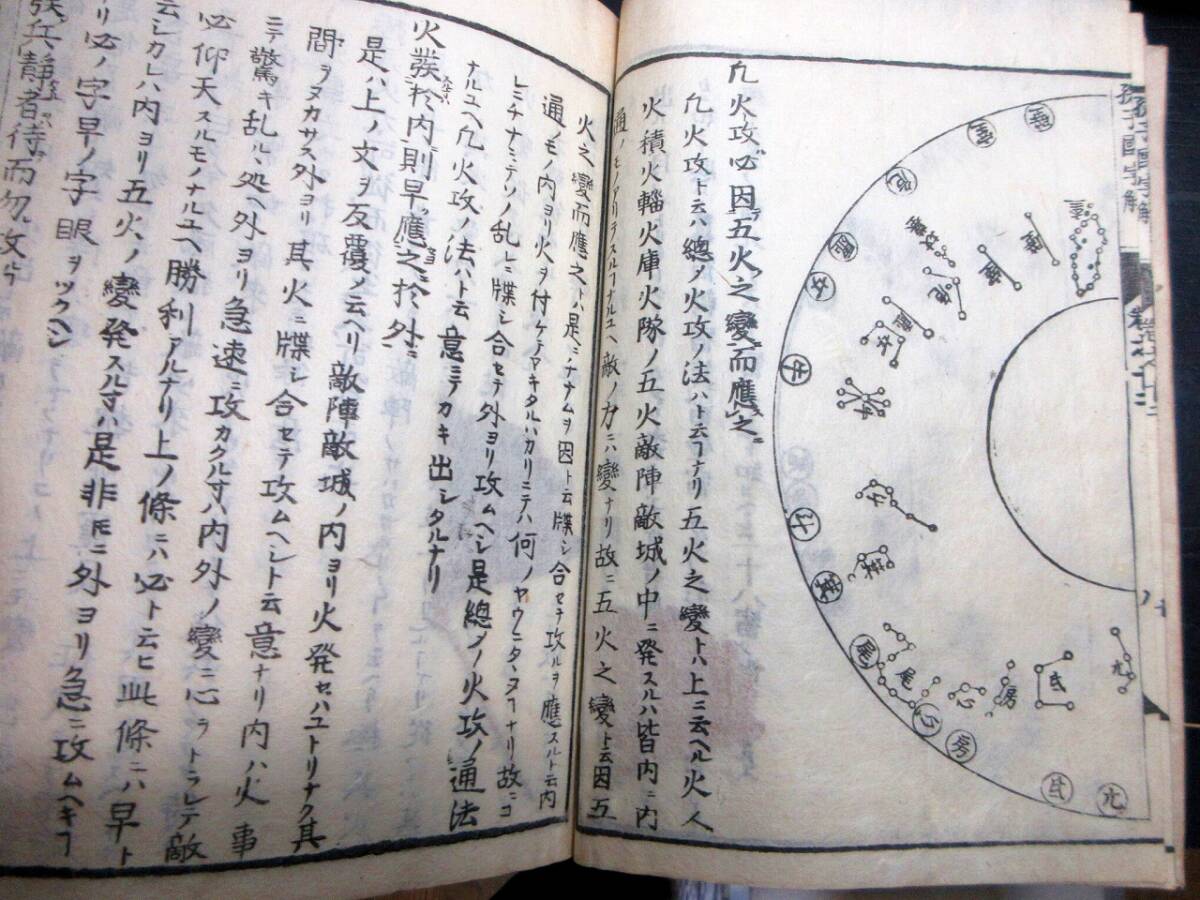 孫子國字解
危
虚
女
牛
斗
箕
尾
心
房
氐
亢
牛
斗
箕
尾
心
房
氐
亢
凢火攻必因五火之變而應之
凢火攻トハ總ノ火攻ノ法ハト云フナリ五火之變トハ上ニ云ヘル火人
火積火輜火庫火隊ノ五火敵陣敵城ノ中ニ発スルハ皆内ニ内
通ノモノアリテスルヿナルユヘ敵ノ方ニハ變ナリ故ニ五火之變ト云因五
火之變而應之トハ是ニチナムヲ因ト云牒シ合セテ攻ルヲ應スルト云内
通ノモノ内ヨリ火ヲ付ケテアキタルハカリニテハ何ノヤウニタヽヌヿナリ故ニコ
レニチナミテソノ乱レニ牒シ合セテ外ヨリ攻ムヘシ是總ノ火攻ノ通法
ナルユヘ凢火攻ノ法ハト云意ニテカキ出シタルナリ
火發於内則早應之於外
是ハ上ノ文ヲ反覆ノ云ヘリ敵陣敵城ノ内ヨリ火発セハユトリナク其
間ヲヌカサス外ヨリ其火ニ牒シ合セテ攻ムヘシト云意ナリ内ハ火事
ニテ驚キ乱ル処ヘ外ヨリ急速ニ攻カクル寸ハ内外ノ變ニ心ヲトラレテ敵
必仰天スルモノナルユヘ勝利アルナリ上ノ條ニハ必ト云ヒ此條ニハ早ト
云シカレハ内ヨリ五火ノ變発スル寸ハ是非𪜈ニ外ヨリ急ニ攻ムヘキヿ
リ必ノ字早ノ字眼ヲツクヘシ
兵靜者待而勿攻